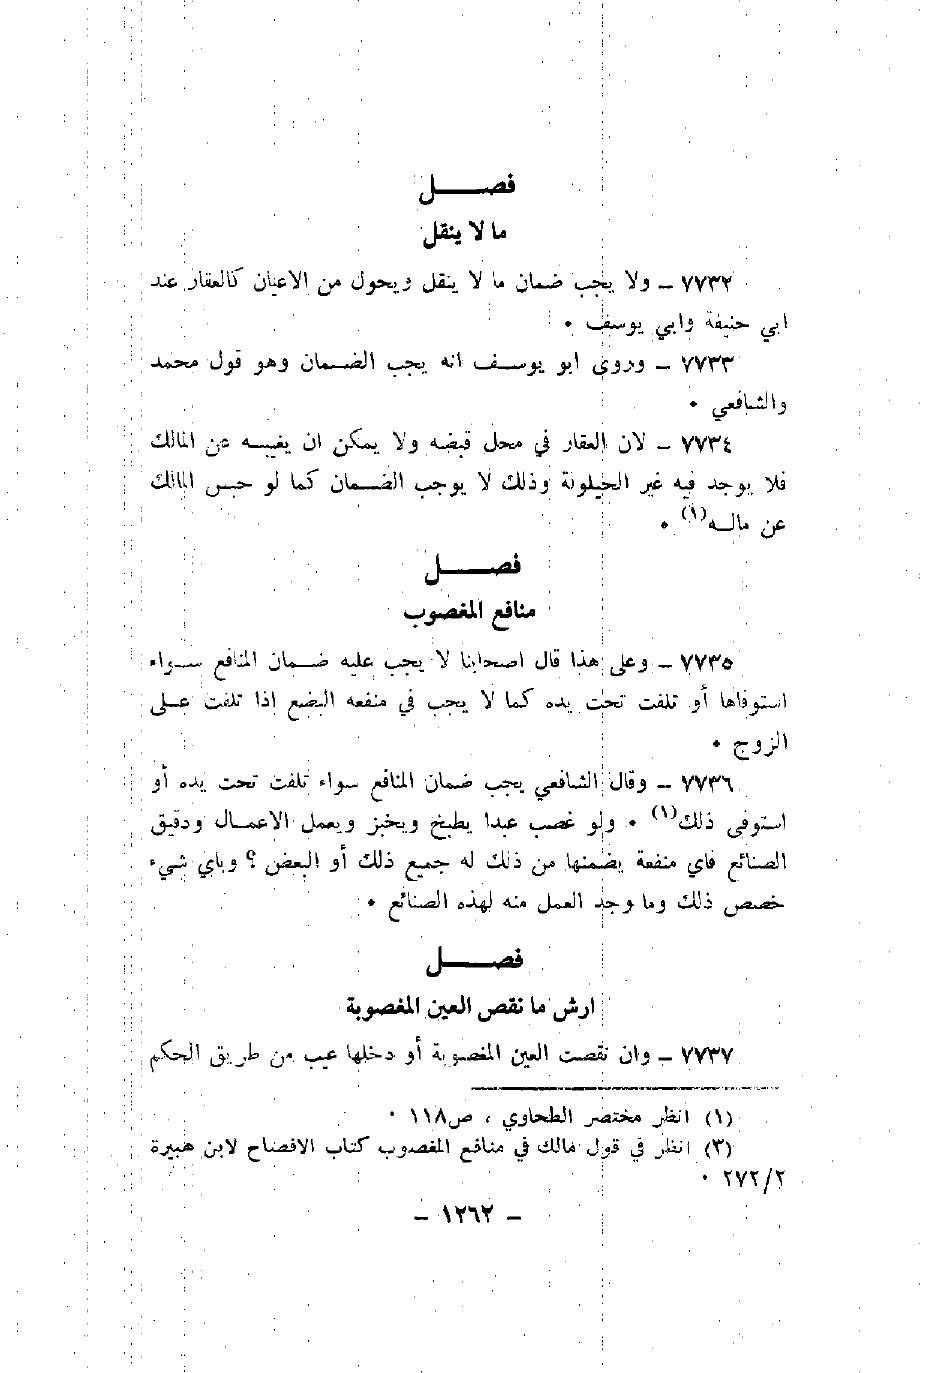 فصــــل
ما لا ينقل
٧٧٣٢ ــ ولا يجب ضمان ما لا ينقل ويحول من الاعيان كالعقار عند
ابي حنيفة وابي يوسف •
٧٧٣٣ ــ وروى ابو يوســف انه يجب الضـمان وهو قول محمد
والشافعي •
٧٧٣٤ ــ لان العقار في محل قبضه ولا يمكن ان يغيبـه عن المالك
فلا يوجد فيه غير الحيلولة وذلك لا يوجب الضـمان كما لو حبس المالك
عن مالـه(١) •
فصــــل
منافع المغصوب
٧٧٣٥ ــ وعلى هذا قال اصحابنا لا يجب عليه ضـمان المنافع سـواء
استوفاها أو تلفت تحت يده كما لا يجب في منفعه البضع اذا تلفت علـى
الزوج •
٧٧٣٦ ــ وقال الشافعي يجب ضمان المنافع سواء تلفت تحت يده أو
استوفى ذلك(١) • ولو غصب عبدا يطبخ ويخبز ويعمل الاعمـال ودقيق
الصنائع فاي منفعة يضمنها من ذلك له جميع ذلك أو البعض ؟ وباي شيء
خصص ذلك وما وجد العمل منه لهذه الصنائع •
فصــــل
ارش ما نقص العين المغصوبة
٧٧٣٧ ــ وان نقصت العين المغصوبة أو دخلها عيب من طريق الحكم
(١) انظر مختصر الطحاوي ، ص١١٨ •
(٣) انظر في قول مالك في منافع المغصوب كتاب الافصاح لابن هبيرة
٢٧٢/٢ •
ــ ١٢٦٢ ــ